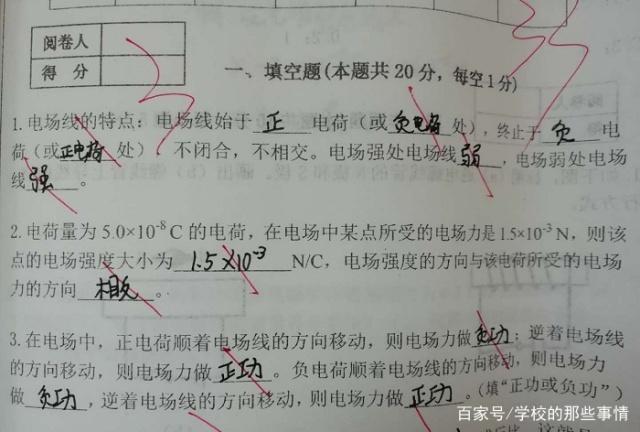 阅卷人
得 分
一、填空题(本题共20分，每空1分)
1.电场线的特点：电场线始于 正 电荷（或 负电荷 处），终止于 负 电
荷（或 正电荷 处），不闭合，不相交。电场强处电场线 弱 ，电场弱处电场
线 强 。
2.电荷量为5.0×10⁻⁸C的电荷，在电场中某点所受的电场力是1.5×10⁻³N，则该
点的电场强度大小为 1.5×10⁻³ N/C，电场强度的方向与该电荷所受的电场
力的方向 相反 。
3.在电场中，正电荷顺着电场线的方向移动，则电场力做 负功；逆着电场线
的方向移动，则电场力做 正功 。负电荷顺着电场线的方向移动，则电场力
做 负功 ，逆着电场线的方向移动，则电场力做 正功 。(填“正功或负功”)
百家号/学校的那些事情